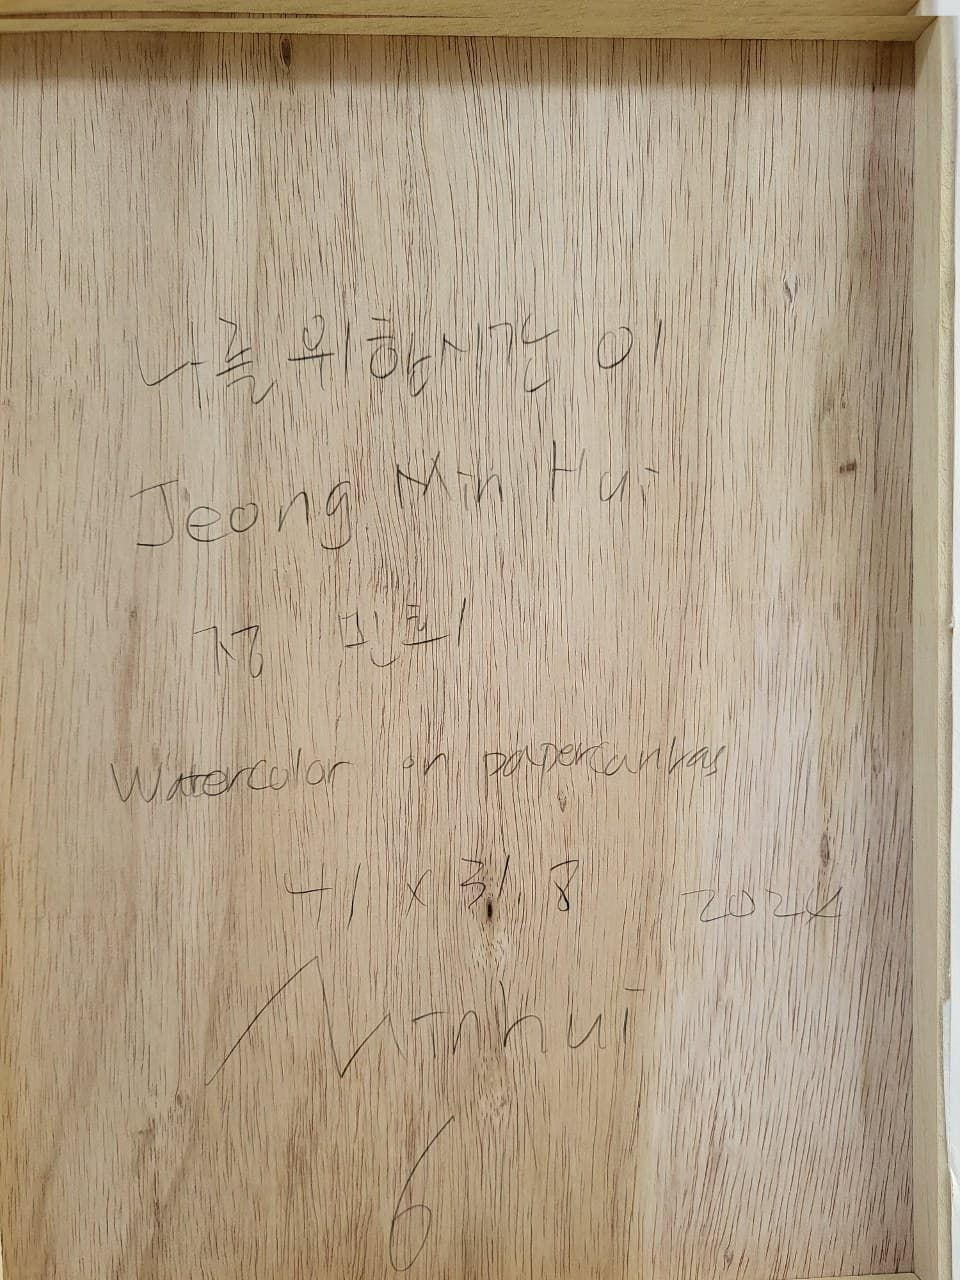 나를 위한 시간 01
Jeong Min Hui
정 민희
Watercolor on papercanvas
41 x 31.8 2024
Minhui
6